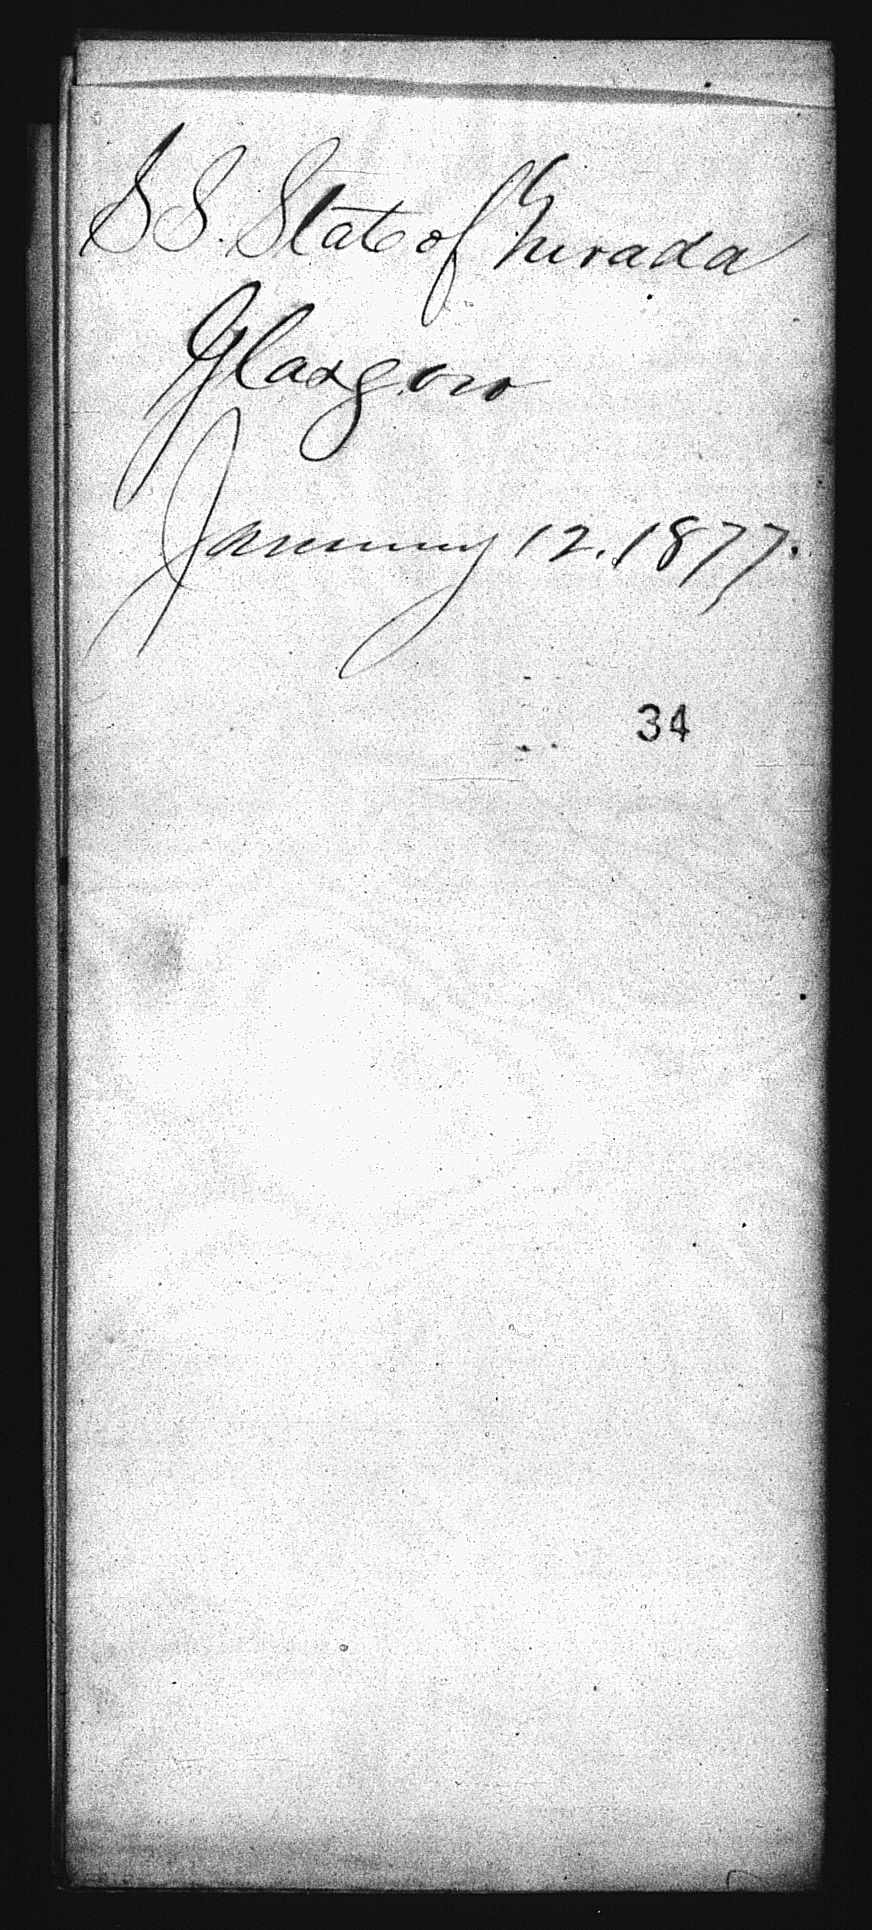 SS. State of Nevada
Glasgow
January 12. 1877.
34